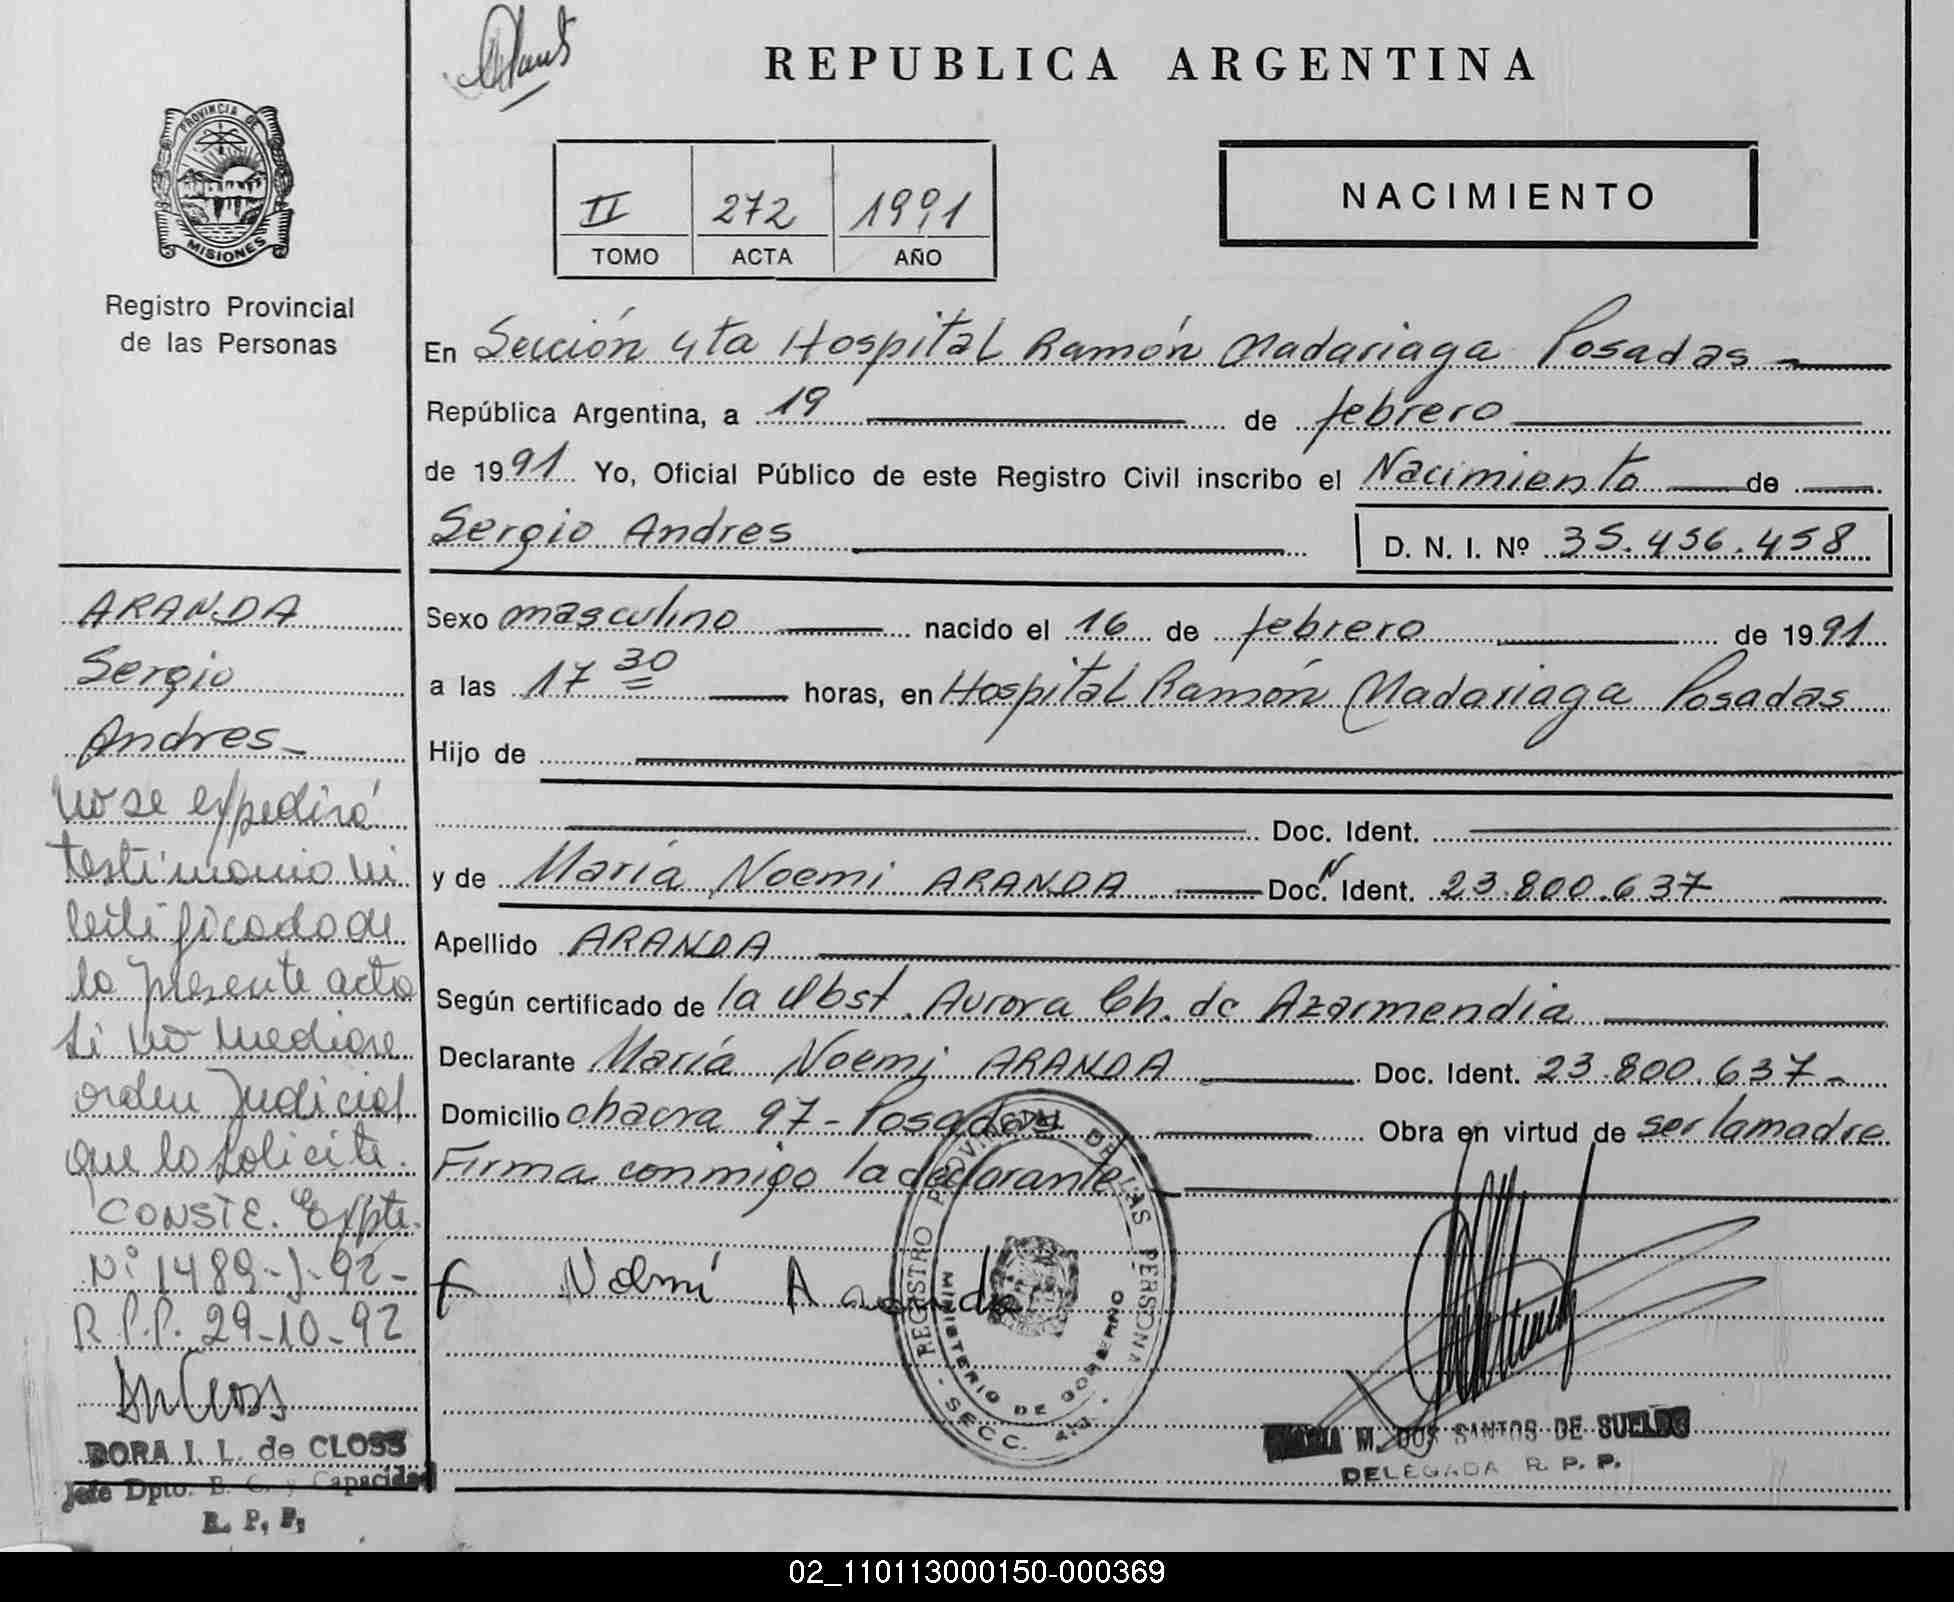 REPUBLICA ARGENTINA
PROVINCIA DE
MISIONES
Registro Provincial
de las Personas
II 272 1991
TOMO ACTA AÑO
NACIMIENTO
En Sección 4ta Hospital Ramón Madariaga Posadas
República Argentina, a 19 de febrero
de 1991 Yo, Oficial Público de este Registro Civil inscribo el Nacimiento de
Sergio Andres D. N. I. Nº 35.456.458
Sexo masculino nacido el 16 de febrero de 1991
a las 17 30 horas, en Hospital Ramón Madariaga Posadas
Hijo de
Doc. Ident.
y de María Noemi ARANDA Doc. Ident. 23.800.637
Apellido ARANDA
Según certificado de la Obst. Aurora Ch. de Azarmendia
Declarante María Noemi ARANDA Doc. Ident. 23.800.637-
Domicilio chacra 97 - Posadas Obra en virtud de ser la madre
Firma conmigo la declarante
Noemí Aranda
REGISTRO PROVINCIAL DE LAS PERSONAS
MINISTERIO DE GOBIERNO
- SECC. 4ta. -
MARIA M. DOS SANTOS DE SUELDO
DELEGADA R. P. P.
ARANDA
Sergio
Andres-
No se expedirá
testimonio ni
certificado de
la presente acta
si no mediare
orden Judicial
que lo solicite.
CONSTE. Expte.
Nº 1489-J-92-
R.P.P. 29-10-92
DORA I. L. de CLOSS
Jefe Dpto. E. C. y Capacidad
R. P. P.
02_110113000150-000369